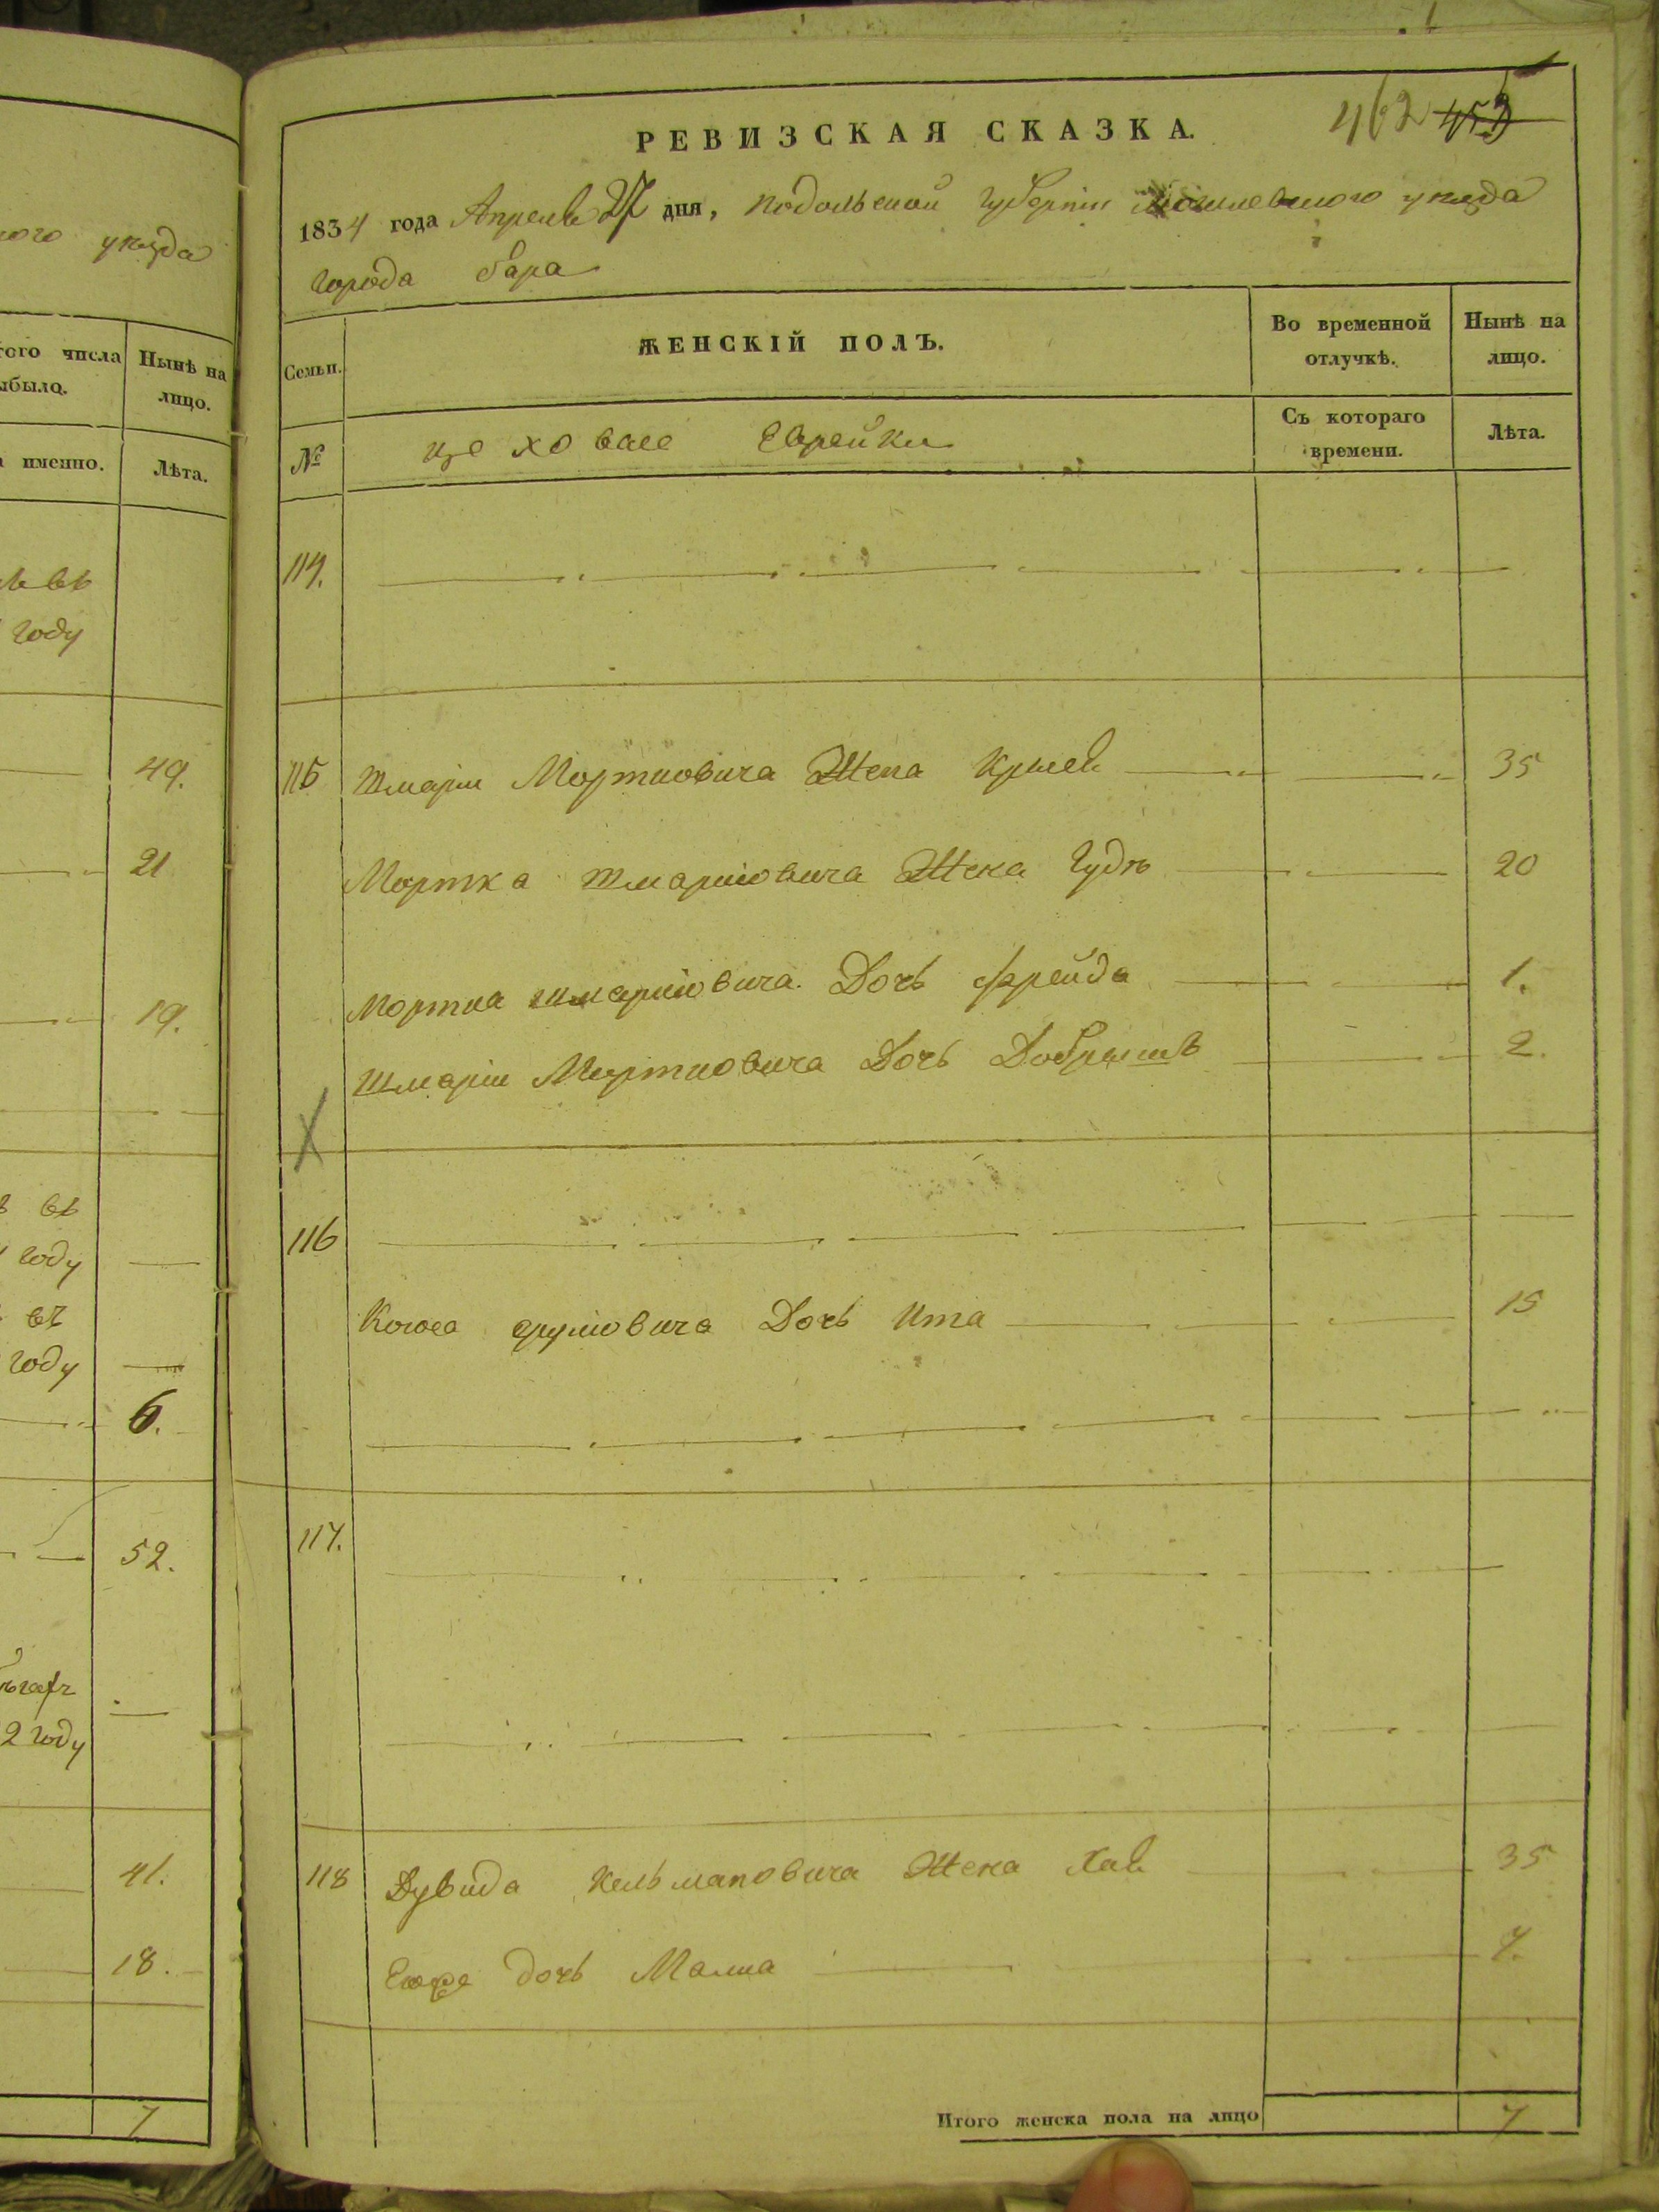 ного уезда
того числа
Нынѣ на
ыбыло.
лицо.
а именно.
Лѣта.
въ
году
49.
21
19.
въ
году
въ
году
6.
52.
2 году
41.
18.
7
462 453
РЕВИЗСКАЯ СКАЗКА.
1834 года Апреля 27 дня, Подольской Губернии Могилевского уезда
города Бара
Семьи.
ЖЕНСКІЙ ПОЛЪ.
Во временной отлучкѣ.
Нынѣ на лицо.
№
цеховые Еврейки
Съ котораго времени.
Лѣта.
114.
115 Шмарiи Мортковича Жена 35
Мортка Шмарiовича Жена Гудя 20
Мортка Шмарiовича Дочь Фрейда 1.
Шмарiи Мортковича Дочь Добрышъ 2.
X
116
Дочь Ита 15
117.
118 Дувида Кельмановича Жена Хая 35
Его же дочь Малка 7.
Итого женска пола на лицо 7